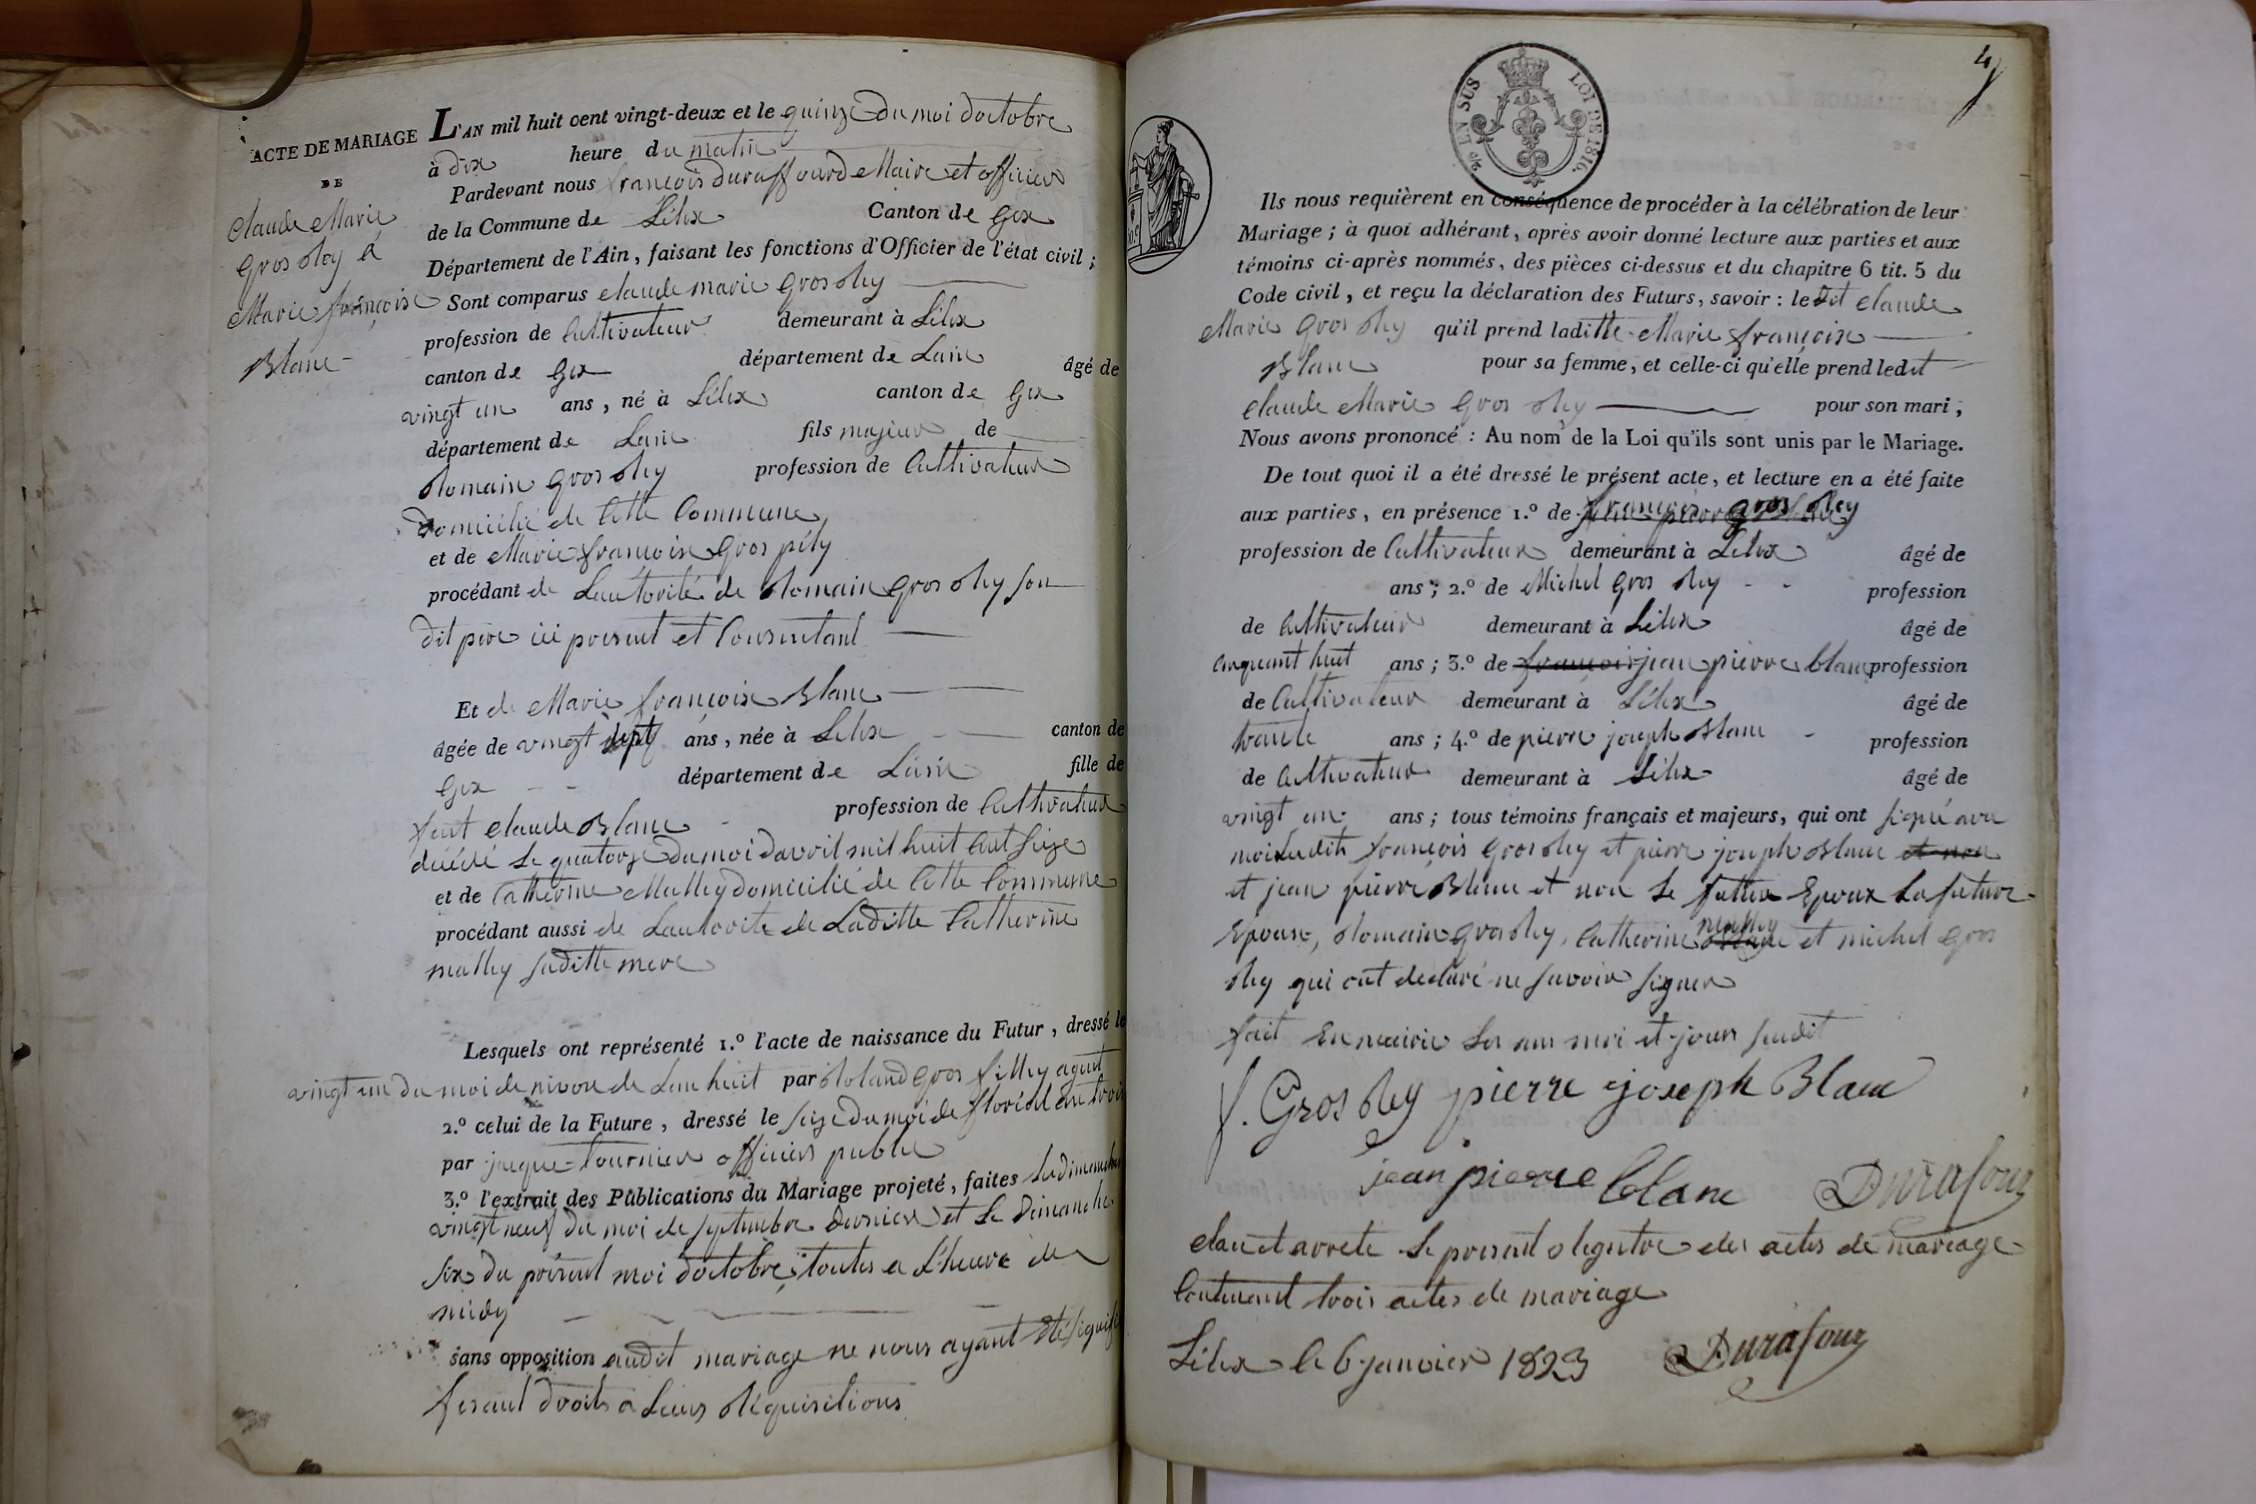 ACTE DE MARIAGE
DE
Claude Marie
Gros Rey &
Marie françoise
Blanc
L'AN mil huit cent vingt-deux et le quinze du moi doctobre
à dix heure du matin
Pardevant nous françois Duraffourd Maire et officier
de la Commune de Lélex Canton de Gex
Département de l'Ain, faisant les fonctions d'Officier de l'état civil;
Sont comparus claude marie Gros Rey
profession de Cultivateur demeurant à Lélex
canton de Gex département de Lain âgé de
vingt un ans, né à Lélex canton de Gex
département de Lain fils majeur de
Romain Gros Rey profession de Cultivateur
Domicilié de Cette Commune
et de Marie françoise Gros
procédant de Lautorité de Romain Gros Rey son
dit père ici present et Consentant
Et de Marie françoise Blanc
âgée de vingt sept ans, née à Lelex canton de
Gex département de Lain fille de
feut Claude Blanc profession de Cultivateur
décédé Le quatorze du moi davril mil huit Cent seize
et de Catherine Malley domicilié de Cette Commune
procédant aussi de Lautorite de Laditte Catherine
malley saditte mere
Lesquels ont représenté 1.º l'acte de naissance du Futur, dressé le
vingt un du moi de nivose de Lan huit par Roland Gros agent
2.º celui de la Future, dressé le seize du moi de floréal an trois
par jaque tournier officier public
3.º l'extrait des Publications du Mariage projeté, faites Le dimanche
vingt neuf du moi de septembre Dernier et Le Dimanche
six du présent moi doctobre toutes a Lheure de
midy
sans opposition audit mariage ne nous ayant été signifié
fesant droits a Leurs Réquisitions
4
LOI DE 1816.
Ils nous requièrent en conséquence de procéder à la célébration de leur
Mariage; à quoi adhérant, après avoir donné lecture aux parties et aux
témoins ci-après nommés, des pièces ci-dessus et du chapitre 6 tit. 5 du
Code civil, et reçu la déclaration des Futurs, savoir: le dit Claude
Marie Gros Rey qu'il prend laditte Marie françoise
Blanc pour sa femme, et celle-ci qu'elle prend ledit
Claude Marie Gros Rey pour son mari;
Nous avons prononcé: Au nom de la Loi qu'ils sont unis par le Mariage.
De tout quoi il a été dressé le présent acte, et lecture en a été faite
aux parties, en présence 1.º de françois gros Rey
profession de Cultivateur demeurant à Lélex âgé de
ans; 2.º de Michel Gros Rey profession
de Cultivateur demeurant à Lélex âgé de
Cinquant huit ans; 3.º de françois jean pierre blanc profession
de Cultivateur demeurant à Lélex âgé de
trante ans; 4.º de pierre joseph Blanc profession
de Cultivateur demeurant à Lélex âgé de
vingt un ans; tous témoins français et majeurs, qui ont signé avec
moi Ledits françois Gros Rey et pierre joseph Blanc et non
et jean pierre Blanc et non Le futur Epoux La future
Epouse, Romain Gros Rey, Catherine malley et michel Gros
Rey qui ont declaré ne savoir signer
fait En mairie Les an moi et jours susdit
f. Gros Rey pierre joseph Blanc
jean pierre blanc Durafour
clau et arrete Le present Registre des actes de mariage
Contenant trois actes de mariage
Lélex le 6 janvier 1823 Durafour